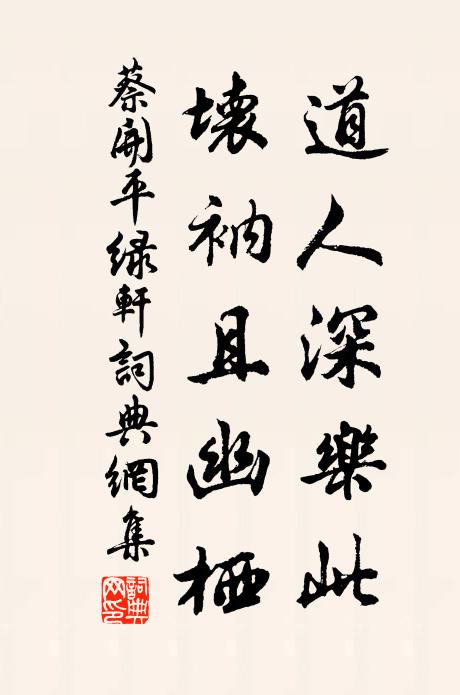 道人深樂此
壞衲且幽栖
蔡開平绿軒詞典網集
詞典網印